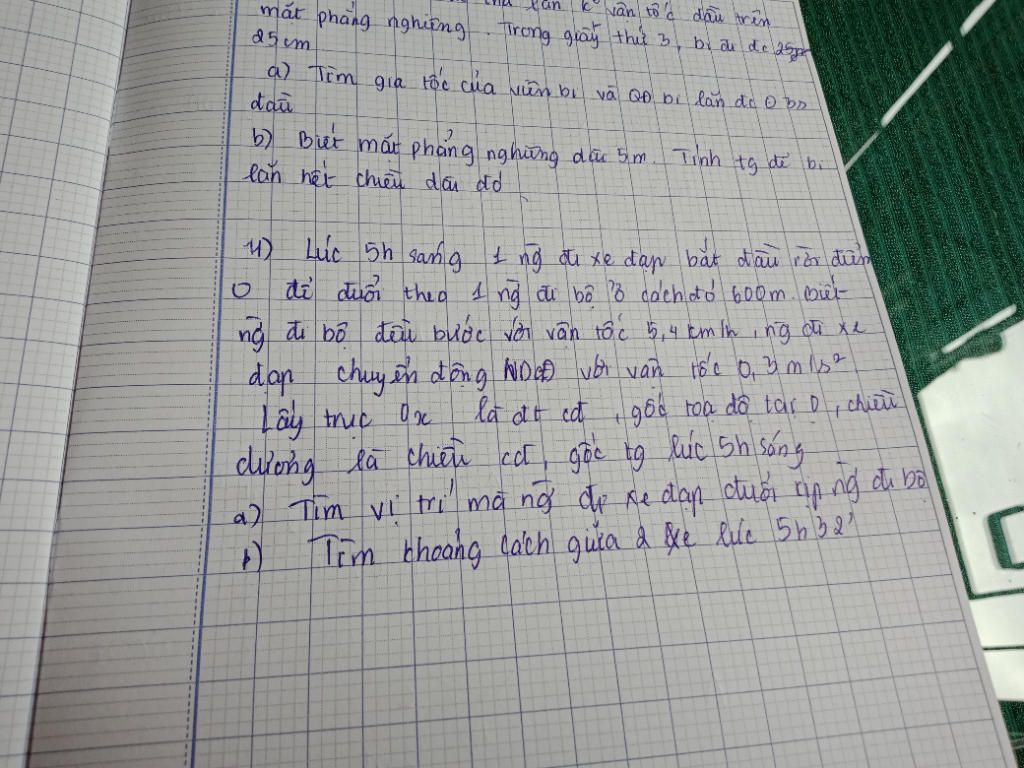 lăn k vận tốc đầu trên
mặt phẳng nghiêng. Trong giây thứ 3, bi đi đc
25cm
a) Tìm gia tốc của viên bi và QĐ bi lăn đc
đầu
b) Biết mặt phẳng nghiêng dài 5m. Tính tg để bi
lăn hết chiều dài đó
4) Lúc 5h sáng 1 ng đi xe đạp bắt đầu rời điểm
O để đuổi theo 1 ng đi bộ ở cách đó 600m. Biết
ng đi bộ đều bước với vận tốc 5,4km/h, ng đi xe
đạp chuyển động NDĐ với vận tốc 0,3m/s²
Lấy trục Ox là đt cđ, gốc toạ độ tại O, chiều
dương là chiều cđ, gốc tg lúc 5h sáng
a) Tìm vị trí mà ng đi xe đạp đuổi kịp ng đi bộ
b) Tìm khoảng cách giữa 2 xe lúc 5h32'